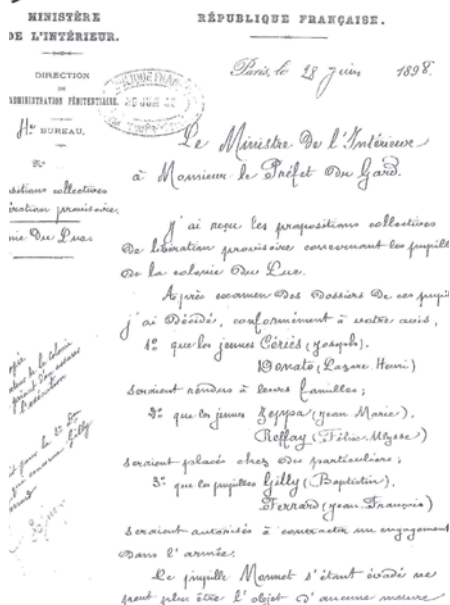 MINISTÈRE
DE L'INTÉRIEUR.
DIRECTION
DE
ADMINISTRATION PÉNITENTIAIRE.
BUREAU.
N°
sitions collectives
ération provisoire.
nie du Luc
RÉPUBLIQUE FRANÇAISE.
Paris, le 28 juin 1898.
Le Ministre de l'Intérieur
à Monsieur le Préfet du Gard.
J'ai reçu les propositions collectives
de libération provisoire concernant les pupill
de la colonie du Luc.
Après examen des dossiers de ces pupil
j'ai décidé, conformément à votre avis,
1° que les jeunes Cériès (Joseph).
Donato (Lazare Henri)
seraient rendus à leurs familles;
2° que les jeunes Zeppa (Jean Marie),
Reffay (Félix Ulysse)
seraient placés chez des particuliers;
3° que les pupilles Gilly (Baptistin),
Ferrard (Jean François)
seraient autorisés à contracter un engagement
dans l'armée.
Le pupille Monnet s'étant évadé ne
peut plus être l'objet d'aucune mesure
de la colonie
Gilly